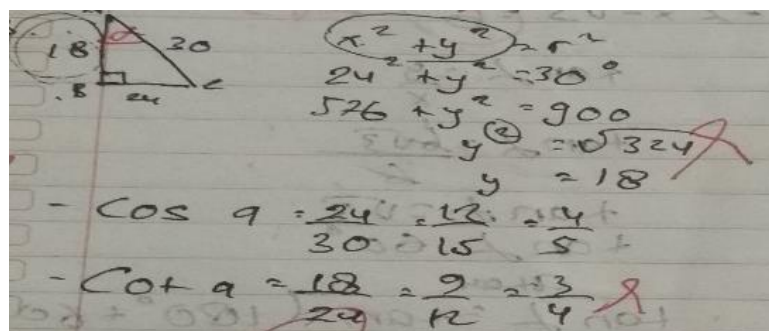 18 30
B 24 C
x² + y² = r²
24² + y² = 30°
576 + y² = 900
y² = √324
y = 18
- Cos a = 24/30 = 12/15 = 4/5
- Cot a = 18/24 = 9/12 = 3/4